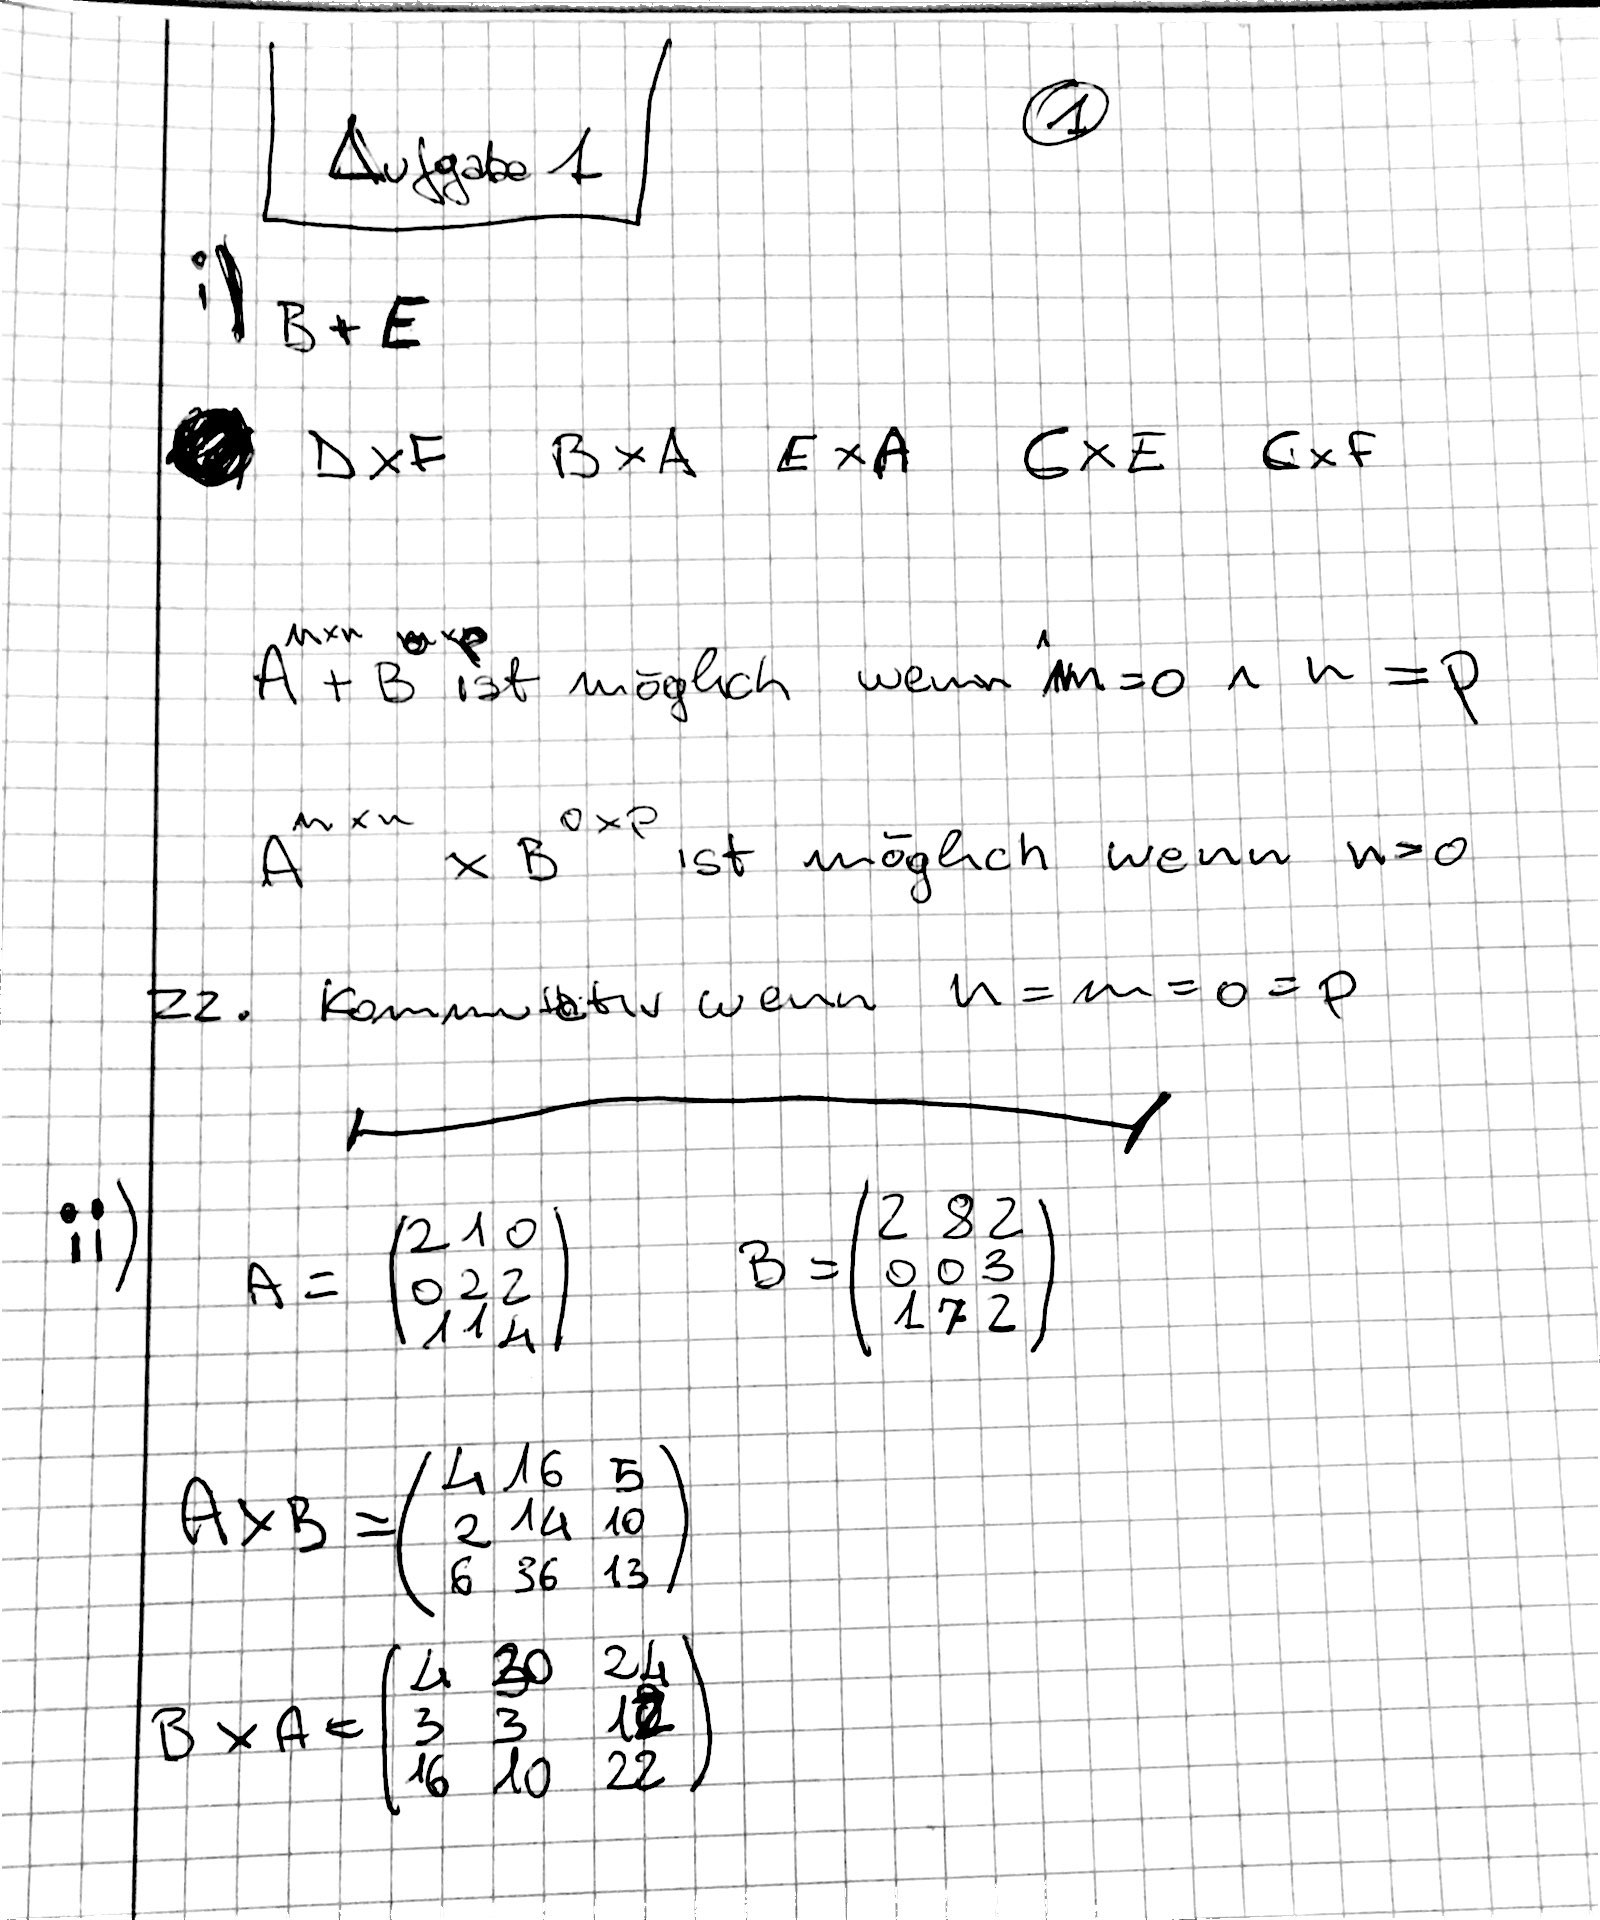 Aufgabe 1
1
i) B + E
D x F B x A E x A C x E C x F
A^{m x n} + B^{o x p} ist möglich wenn m = o ∧ n = p
A^{m x n} x B^{o x p} ist möglich wenn n = o
ZZ. Kommutativ wenn n = m = o = p
ii)
A = (2 1 0
0 2 2
1 1 4)
B = (2 8 2
0 0 3
1 7 2)
A x B = (4 16 5
2 14 10
6 36 13)
B x A = (4 20 24
3 3 12
16 10 22)